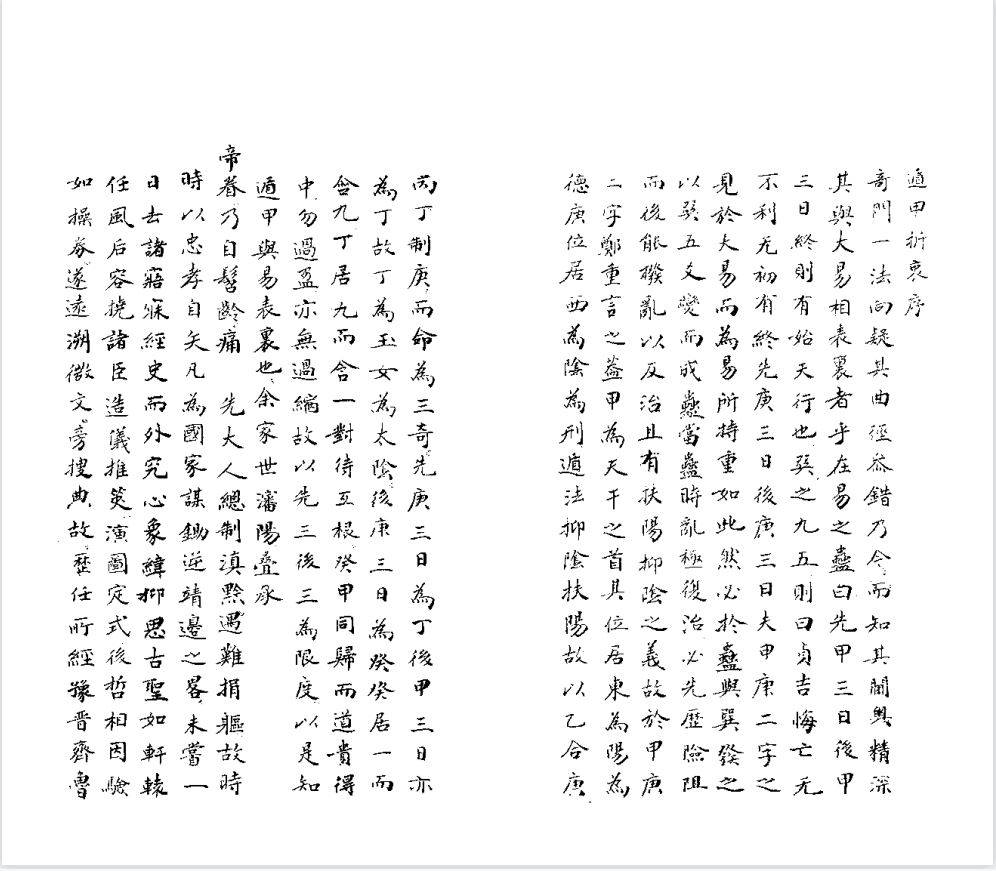 遁甲折衷序
奇門一法向疑其曲徑叅錯乃今而知其閫奥精深
其與大易相表裏者乎在易之蠱曰先甲三日後甲
三日終則有始天行也巽之九五則曰貞吉悔亡无
不利无初有終先庚三日後庚三日夫甲庚二字之
見於大易而為易所持重如此然必於蠱與巽發之
以巽五爻變而成蠱當蠱時亂極復治必先歷險阻
而後能撥亂以反治且有扶陽抑陰之義故於甲庚
二字鄭重言之葢甲為天干之首其位居東為陽為
德庚位居西為陰為刑遁法抑陰扶陽故以乙合庚
丙丁制庚而命為三奇先庚三日為丁後甲三日亦
為丁故丁為玉女為太陰後庚三日為癸癸居一而
含九丁居九而含一對待互根癸甲同歸而道貴得
中勿過盈亦無過縮故以先三後三為限度以是知
遁甲與易表裏也余家世瀋陽叠承
帝眷乃自髫齡痛　先大人總制滇黔遇難捐軀故時
時以忠孝自矢凡為國家謀鋤逆靖邊之畧未嘗一
日去諸寤寐經史而外究心象緯抑思古聖如軒轅
任風后容撓諸臣造儀推筴演圖定式後哲相因驗
如操券遂遠溯微文旁搜典故歷任所經豫晉齊魯